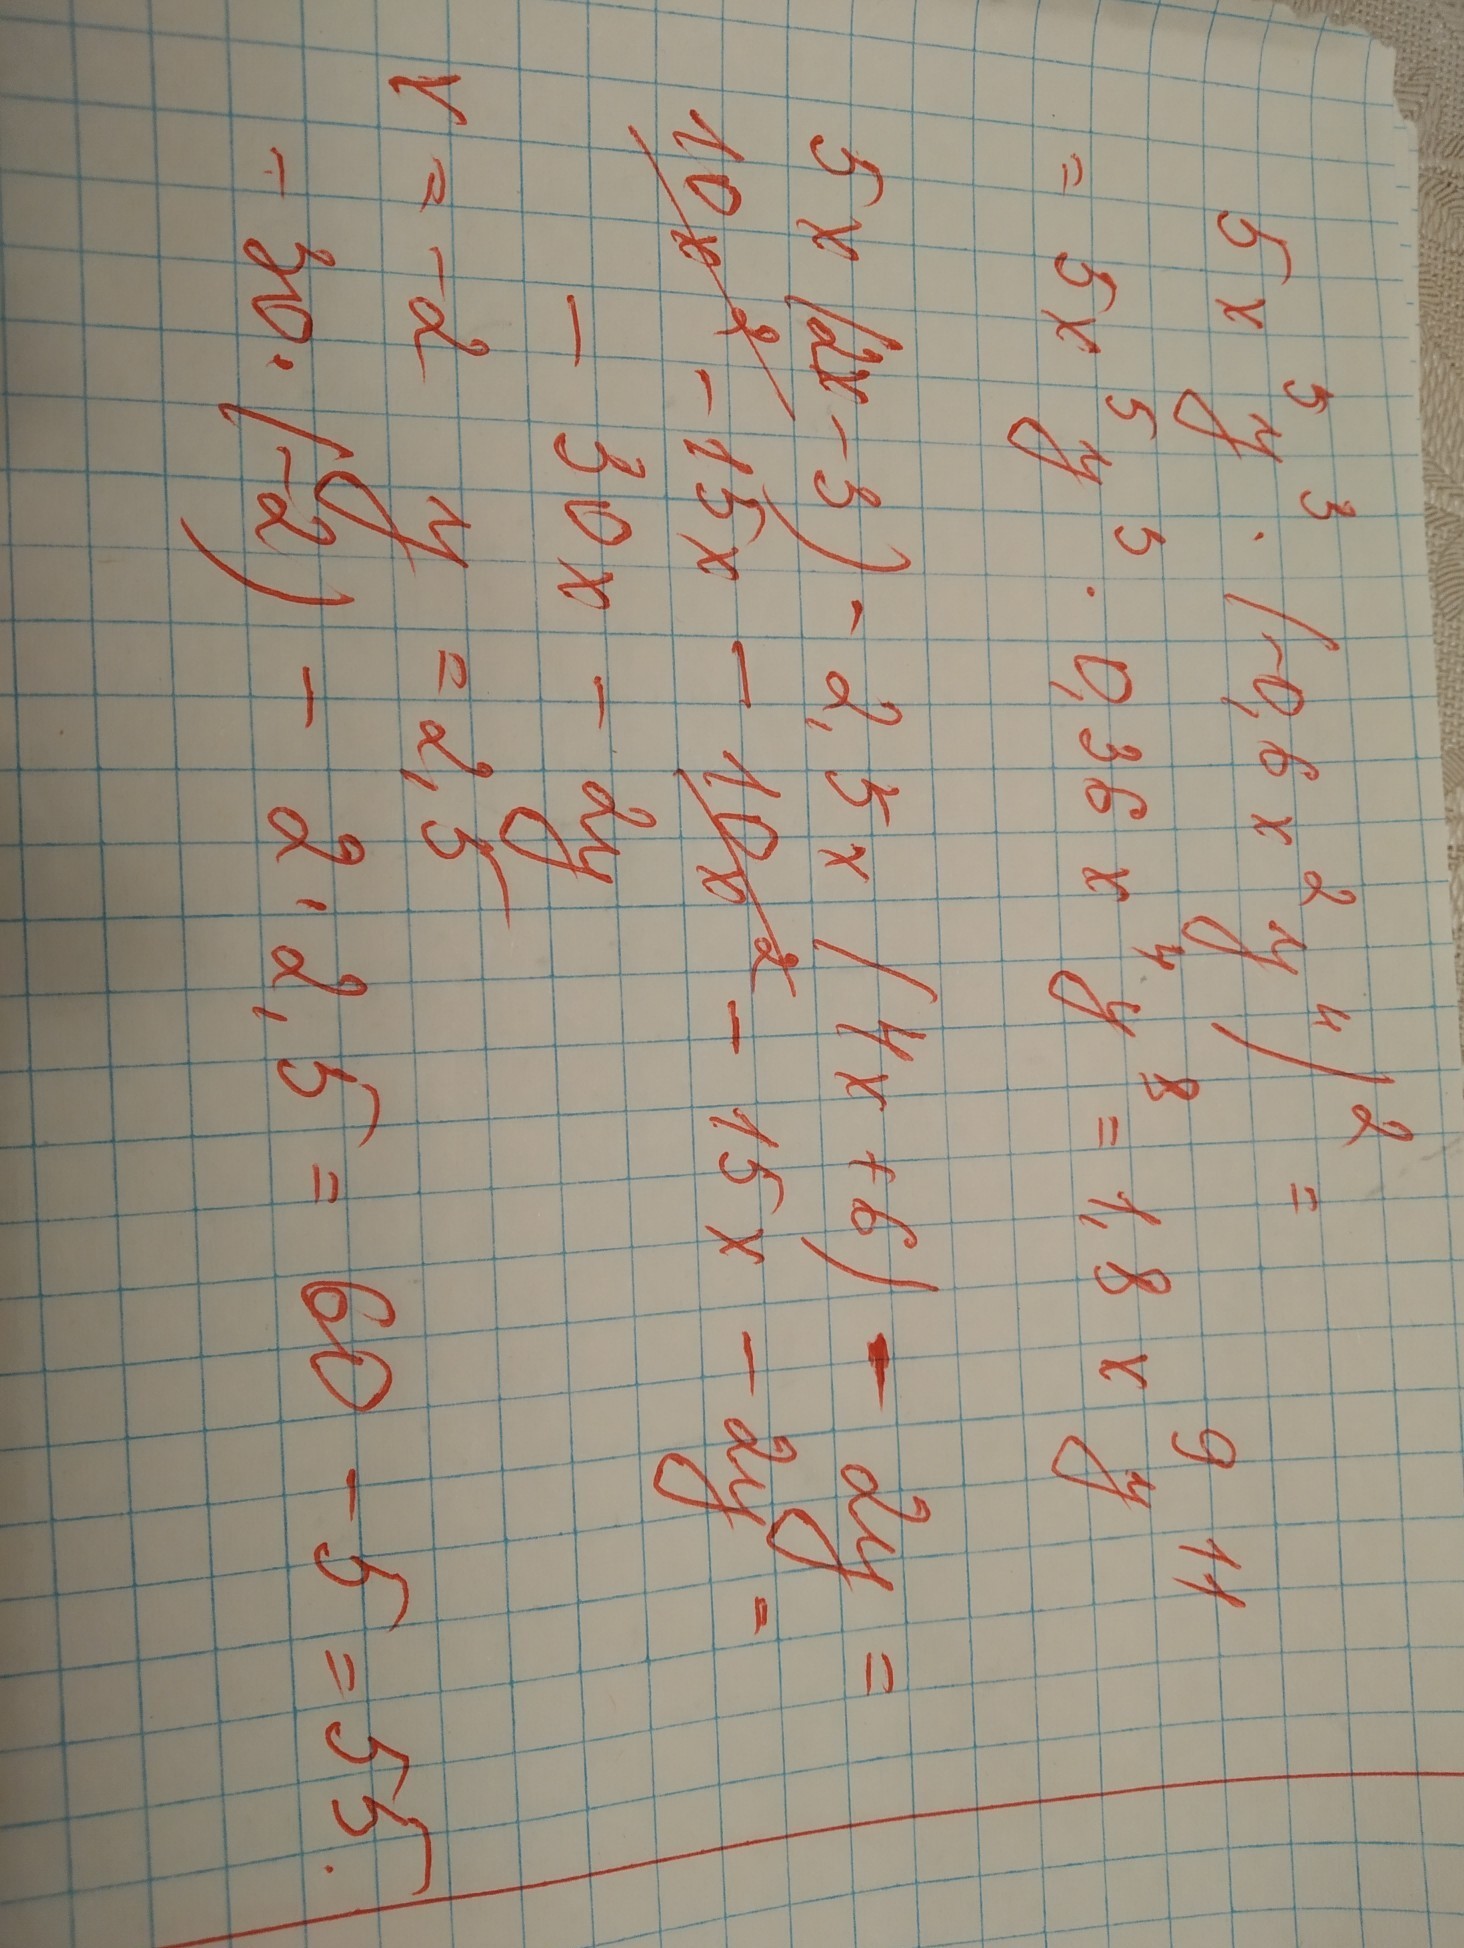 5x⁵y³ · (-0,6x²y⁴)² =
= 5x⁵y³ · 0,36x⁴y⁸ = 1,8x⁹y¹¹
5x(2x-3) - 2,5x(4x+6) - 2y =
10x² - 15x - 10x² - 15x - 2y =
- 30x - 2y
x = -2 y = 2,5
- 30 · (-2) - 2 · 2,5 = 60 - 5 = 55.